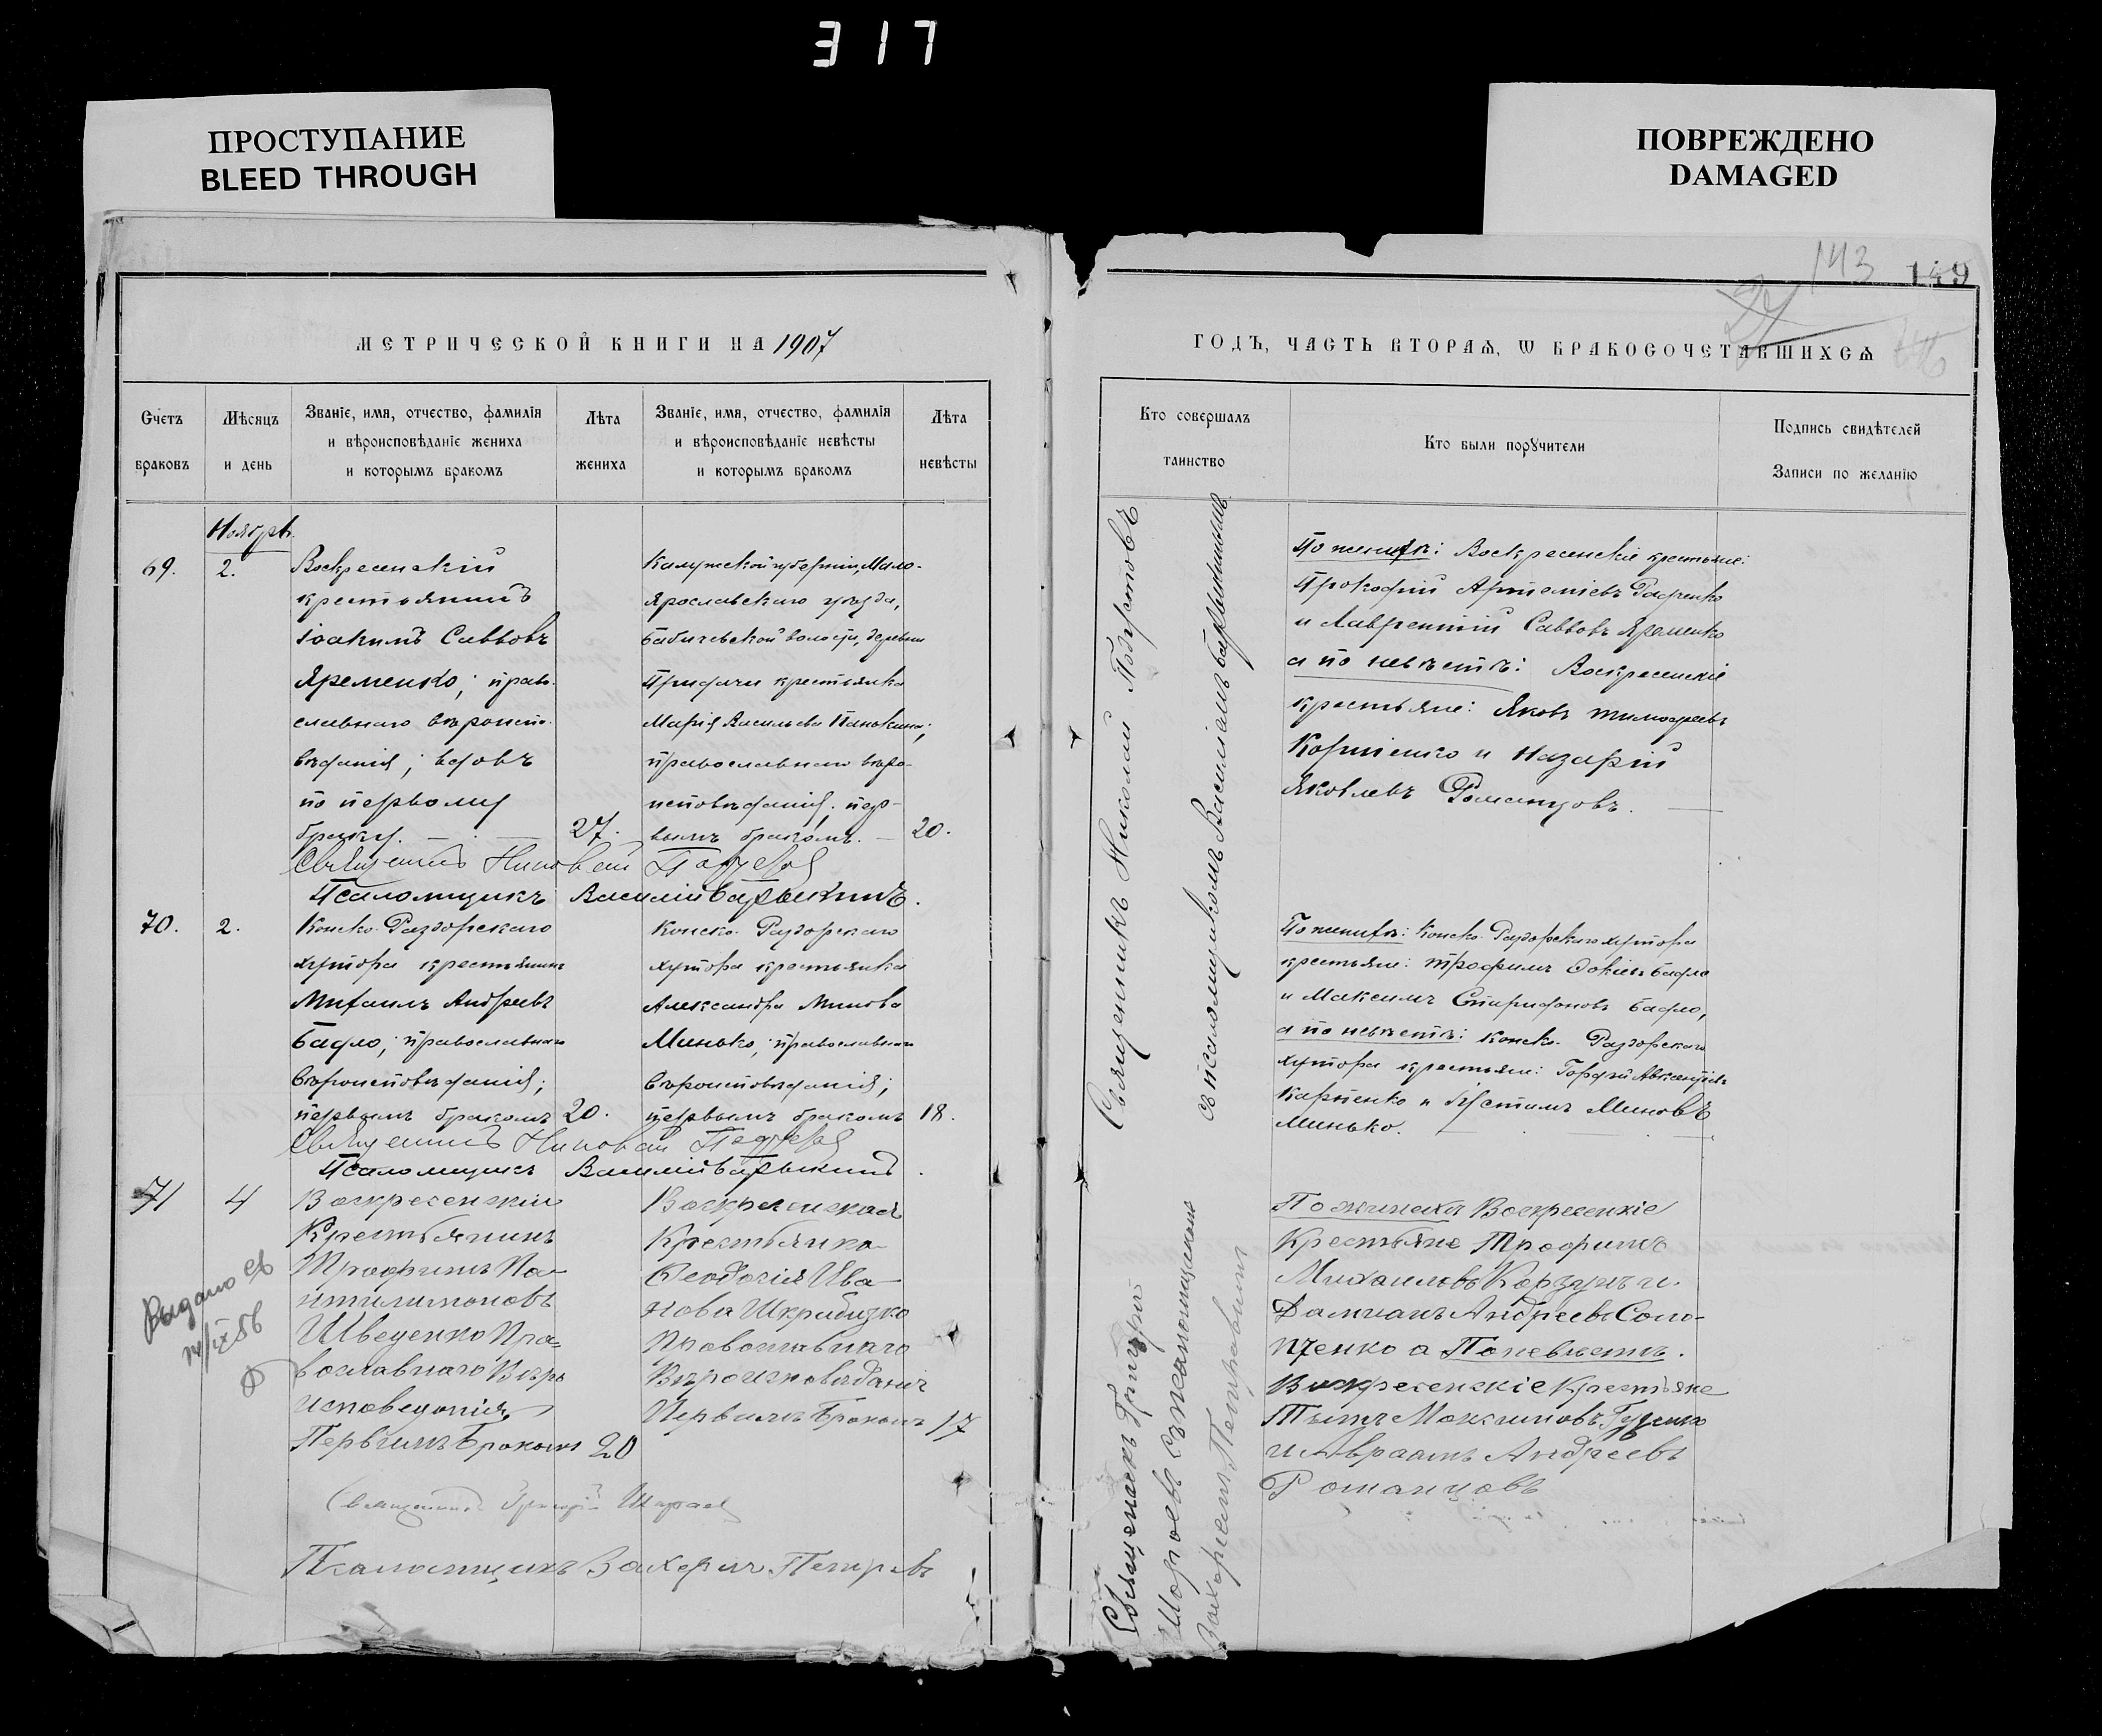 317
ПРОСТУПАНИЕ
BLEED THROUGH
ПОВРЕЖДЕНО
DAMAGED
143
149
МЕТРИЧЕСКОЙ КНИГИ НА 1907
Счетъ браковъ
Мѣсяцъ и день
Званіе, имя, отчество, фамилія
и вѣроисповѣданіе жениха
и которымъ бракомъ
Лѣта жениха
Званіе, имя, отчество, фамилія
и вѣроисповѣданіе невѣсты
и которымъ бракомъ
Лѣта невѣсты
Ноябрь.
69.
2.
Воскресенскій
крестьянинъ
Іоакимъ Савовъ
Яременко; право-
славнаго вѣроиспо-
вѣданія; вдовъ
по первому
браку.
27.
Калужской губерніи, Мало-
ярославскаго уѣзда,
Бабичевской волости, деревни
крестьянка
Марія Васильева
православнаго вѣро-
исповѣданія; пер-
вымъ бракомъ.
20.
Священникъ Николай
Псаломщикъ Василій Барыкинъ.
70.
2.
Конско-Раздорскаго
хутора крестьянинъ
Михаилъ Андреевъ
Бадло; православнаго
вѣроисповѣданія;
первымъ бракомъ
20.
Конско-Раздорскаго
хутора крестьянка
Александра Минова
Минько; православнаго
вѣроисповѣданія;
первымъ бракомъ
18.
Священникъ Николай
Псаломщикъ Василій Барыкинъ
71
4
Воскресенскій
Крестьянинъ
Трофимъ Пан-
тилимоновъ
Шведенко Пра-
вославнаго Вѣро
исповеданія
Первымъ Бракомъ
20
Воскресенская
Крестьянка
Феодосія Ива-
нова
Православнаго
Вѣроисповѣданія
Первымъ Бракомъ
17
Выдано св
14/IX 56
Священникъ Григорій
Псаломщикъ Захарія Петровъ
ГОДЪ, ЧАСТЬ ВТОРАЯ, Ѡ БРАКОСОЧЕТАВШИХСЯ
Кто совершалъ таинство
Кто были порꙋчители
Подпись свидѣтелей
Записи по желанію
Священникъ Николай
съ псаломщикомъ Василіемъ Барыкинымъ
Священикъ Григорій
съ псаломщикомъ
Захаріемъ Петровымъ
По женихѣ: Воскресенскіе крестьяне:
Прокофій Артемьевъ Радченко
и Лаврентій Савовъ Яременко
а по невѣстѣ: Воскресенскіе
крестьяне: Яковъ Тимофеевъ
Корніенко и Назарій
Яковлевъ Романцовъ.
По женихѣ: Конско-Раздорскаго хутора
крестьяне: Трофимъ Бадло
и Максимъ Спиридоновъ Бадло,
а по невѣстѣ: Конско-Раздорскаго
хутора крестьяне: Гордій Авксентіевъ
Карпенко и Устимъ Миновъ
Минько.
По женихѣ Воскресенкіе
Крестьяне Трофимъ
Михаиловъ Корзунъ и
Дамианъ Андреевъ Соло-
а По невѣстѣ.
Воскресенскіе Крестьяне
Титъ Максимовъ Гуденко
и Авраамъ Андреевъ
Романцовъ